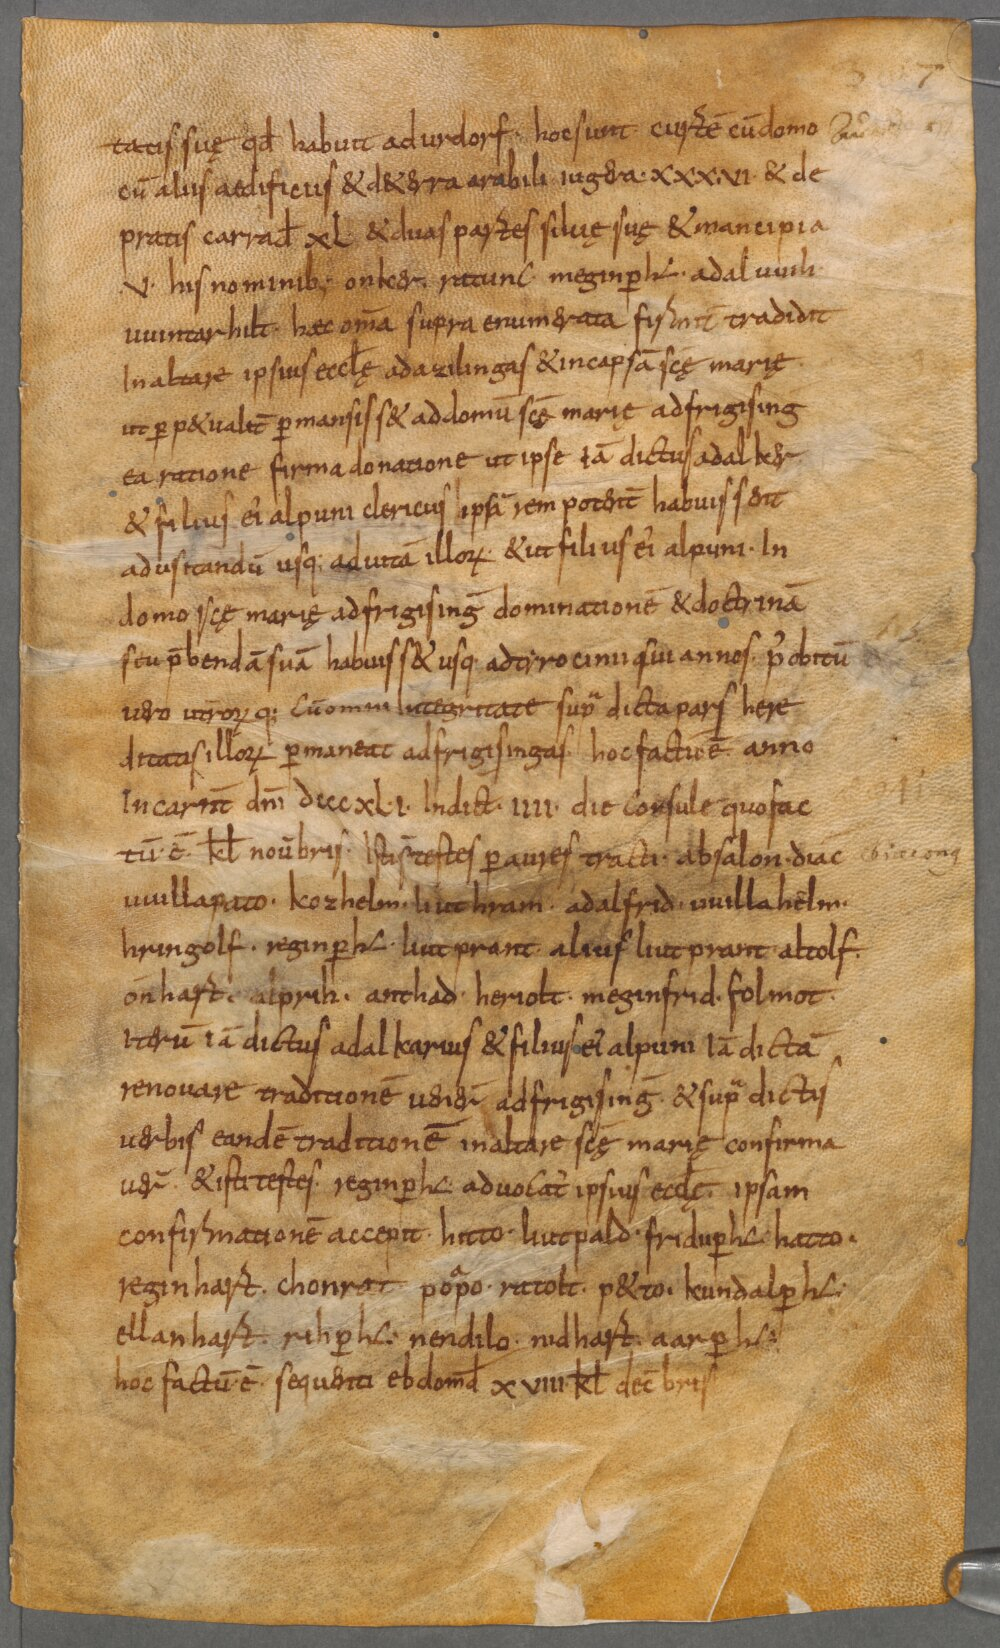 tatis suę qđ habuit ad urdorf · hoc sunt curtē cū domo
cū aliis aedificiis & de terra arabili iugera · XXXVI · & de
pratis carrađ XL · & duas partes silvę suę & mancipia
· V · his nominib; · onker · ratunc · meginp̄ht · adal uuih ·
uuintarhilt · haec om̄a supra enumerata firmit̄ tradidit
In altare ipsius eccłę ad azilingas & in capsā scę̄ marię
ut p̄p&ualit̄ p̄mansiss& ad domū scę̄ marię ad frigising
ea ratione firma donatione ut ipse iā dictus adalker
& filius ei alpuni clericus ipsā rem potent̄ habuissent
ad usitandū usq; ad uitā illoꝝ · & ut filius ei alpuni · In
domo scę̄ marię ad frigisinḡ dominationē & doctrinā
seu p̄bendā suā habuiss& usq; ad tyrocinii sui annos · p̓ obitū
uero utroꝝq; cū omni Integritate sup̄ dicta pars here
ditatis illoꝝ p̄maneat ad frigisingas · hoc factū ē anno
Incarn̄t dn̄i dccc XL · I · Indict · IIII · die consule quo fac
tū · ē · kł nouēbris · Isti s̄ testes p̄ aures tracti · absalon · diac
uuillapato · kozhelm · liuthram · adalfrid · uuillahelm ·
hringolf · reginp̄ht · liutprant · alius liutprant · altolf ·
onhart · alprih · anthad · heriolt · meginfrid · folmot ·
Iterū iā dictus adalkarius & filius ei alpuni iā dictā
renouare traditionē uener̄ ad frigisinḡ · & sup̄ dictis
uerbis eandē traditionē in altare scę̄ marię confirma
uer̄ · & isti testes · reginp̄ht · aduocat̓ ipsius eccłę · ipsam
confirmationē accepit · hitto · liutpald · fridup̄ht · hatto ·
reginhart · chonrat · poppo · ratolt · p&to · kundalp̄ht ·
ellanhart · rihp̄ht · nendilo · nidhart · aarp̄ht ·
hoc factū · ē · sequenti ebdomađ XVIII · kł decēbris